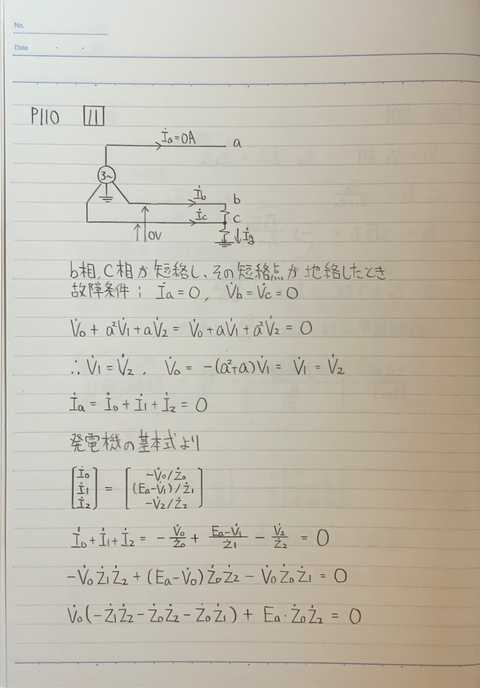 No.
Date
P110 11
İa=0A a
3~
İb b
İc c
0V İg
b相,C相が短絡し、その短絡点が地絡したとき
故障条件; İa = 0, V̇b = V̇c = 0
V̇0 + a²V̇1 + aV̇2 = V̇0 + aV̇1 + a²V̇2 = 0
∴ V̇1 = V̇2, V̇0 = -(a²+a)V̇1 = V̇1 = V̇2
İa = İ0 + İ1 + İ2 = 0
発電機の基本式より
[İ0 İ1 İ2] = [-V̇0/Ż0 (Ea-V̇1)/Ż1 -V̇2/Ż2]
İ0 + İ1 + İ2 = - V̇0/Ż0 + Ea-V̇1/Ż1 - V̇2/Ż2 = 0
-V̇0Ż1Ż2 + (Ea-V̇0)Ż0Ż2 - V̇0Ż0Ż1 = 0
V̇0(-Ż1Ż2-Ż0Ż2-Ż0Ż1) + Ea・Ż0Ż2 = 0